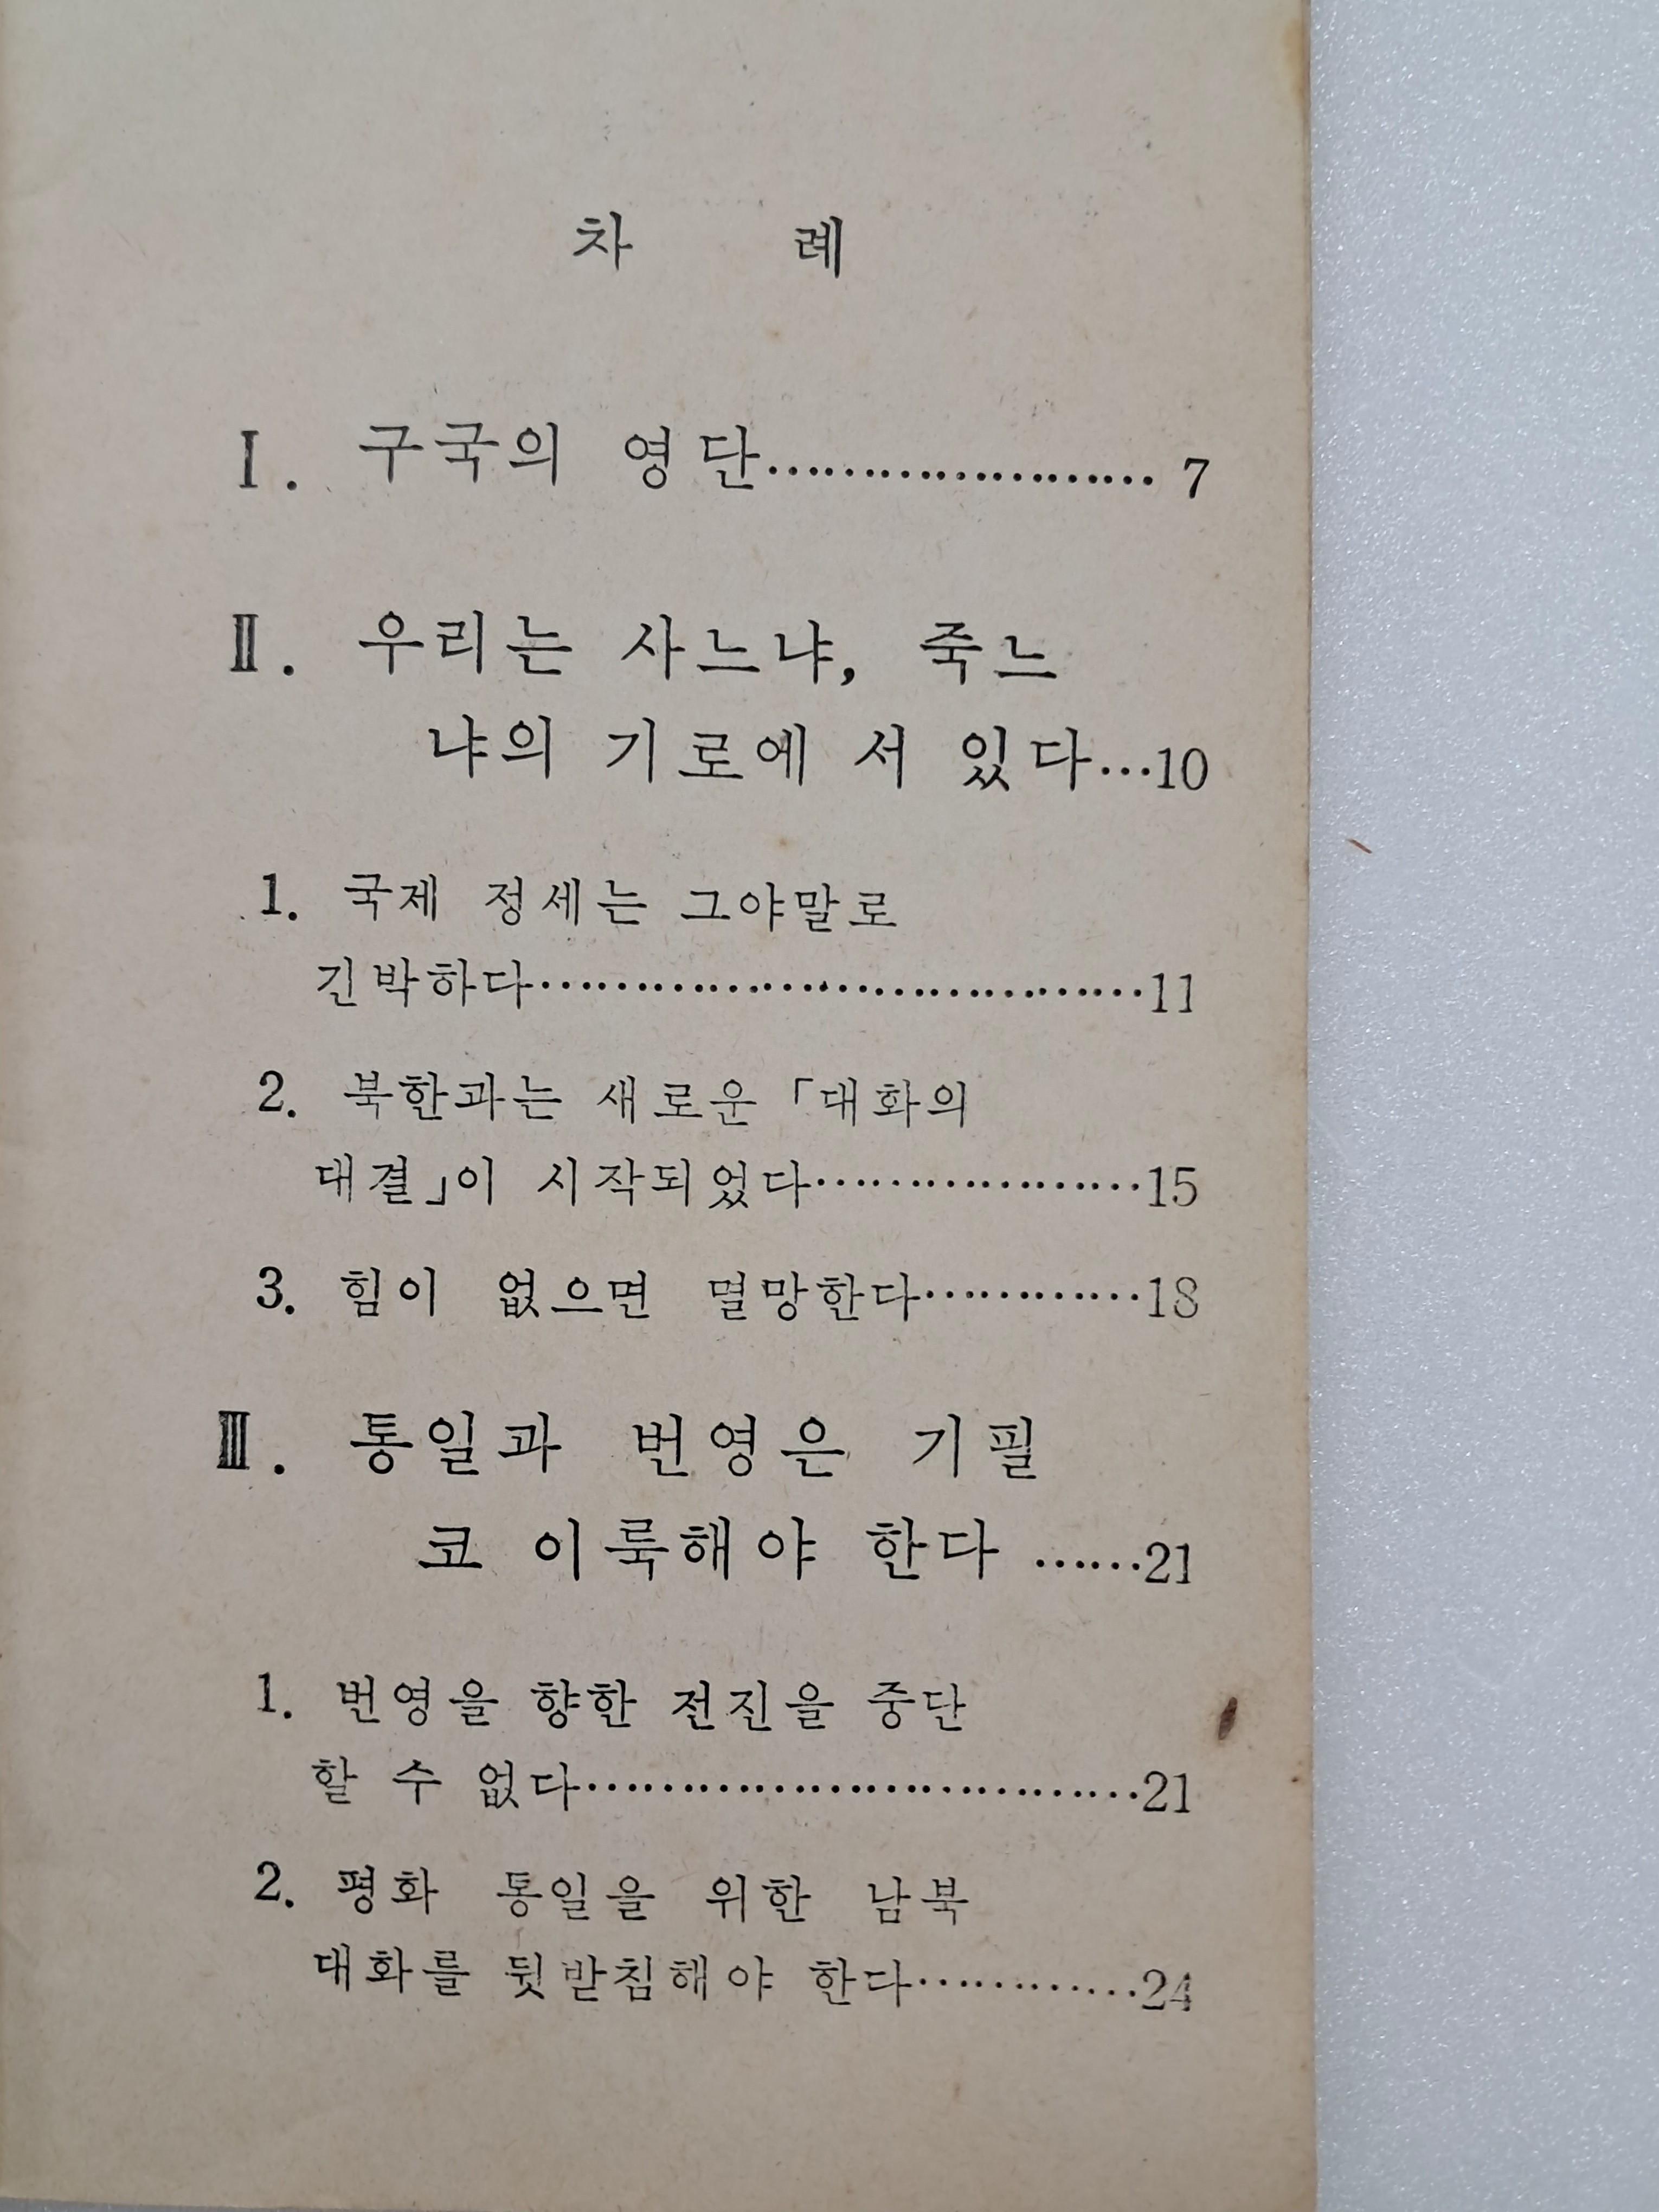 차 례
Ⅰ. 구국의 영단…………………… 7
Ⅱ. 우리는 사느냐, 죽느
냐의 기로에 서 있다…10
1. 국제 정세는 그야말로
긴박하다………………………………11
2. 북한과는 새로운 「대화의
대결」이 시작되었다…………………15
3. 힘이 없으면 멸망한다…………18
Ⅲ. 통일과 번영은 기필
코 이룩해야 한다 ……21
1. 번영을 향한 전진을 중단
할 수 없다……………………………21
2. 평화 통일을 위한 남북
대화를 뒷받침해야 한다…………24